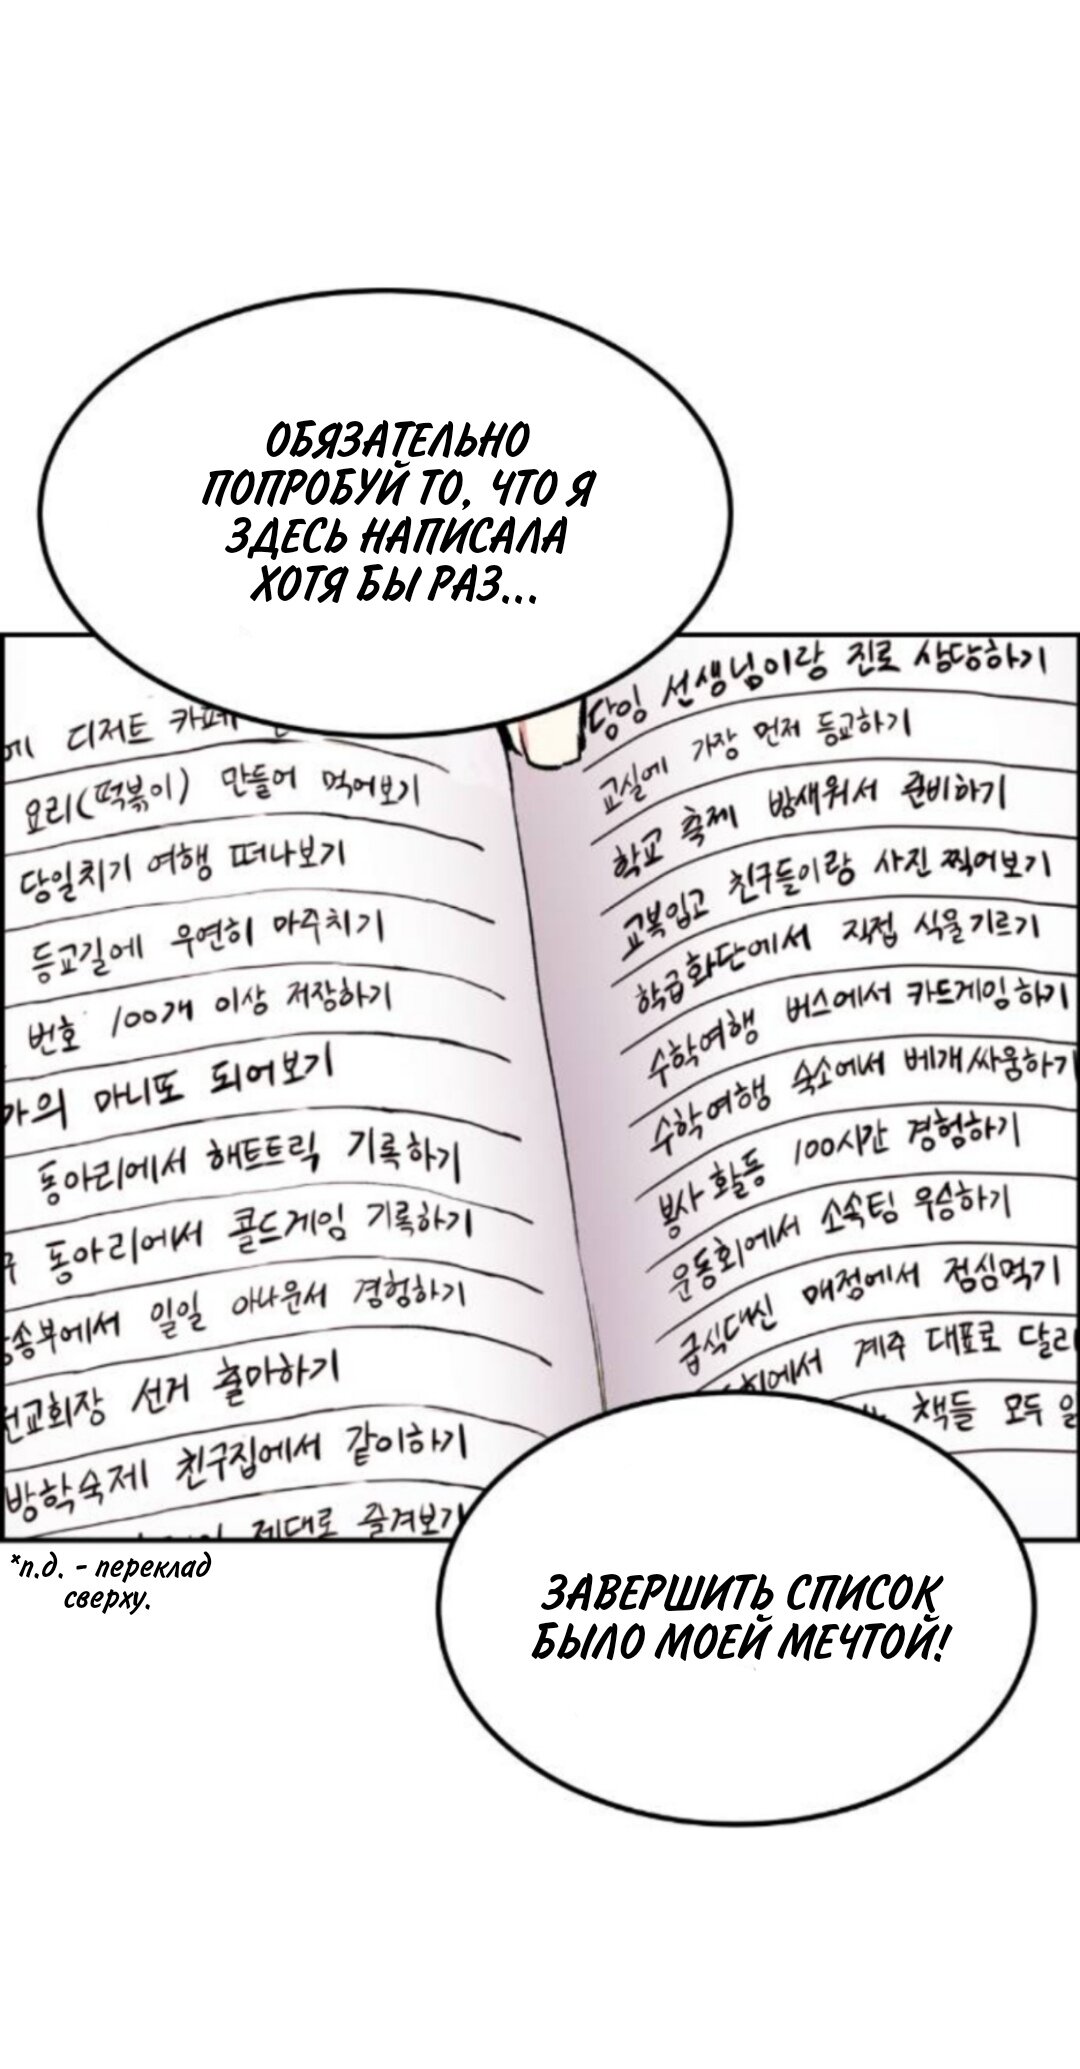 ОБЯЗАТЕЛЬНО
ПОПРОБУЙ ТО, ЧТО Я
ЗДЕСЬ НАПИСАЛА
ХОТЯ БЫ РАЗ...
에 디저트 카페
요리(떡볶이) 만들어 먹어보기
당일치기 여행 떠나보기
등교길에 우연히 마주치기
번호 100개 이상 저장하기
의 마니또 되어보기
동아리에서 해트트릭 기록하기
동아리에서 콜드게임 기록하기
송부에서 일일 아나운서 경험하기
교회장 선거 출마하기
방학숙제 친구집에서 같이하기
제대로 즐겨보기
담임 선생님이랑 진로 상담하기
교실에 가장 먼저 등교하기
학교 축제 밤새워서 준비하기
교복입고 친구들이랑 사진 찍어보기
학급화단에서 직접 식물기르기
수학여행 버스에서 카드게임하기
수학여행 숙소에서 베개싸움하기
봉사활동 100시간 경험하기
운동회에서 소속팀 우승하기
급식대신 매점에서 점심먹기
에서 계주 대표로 달리
책들 모두
*п.д. - переклад
сверху.
ЗАВЕРШИТЬ СПИСОК
БЫЛО МОЕЙ МЕЧТОЙ!